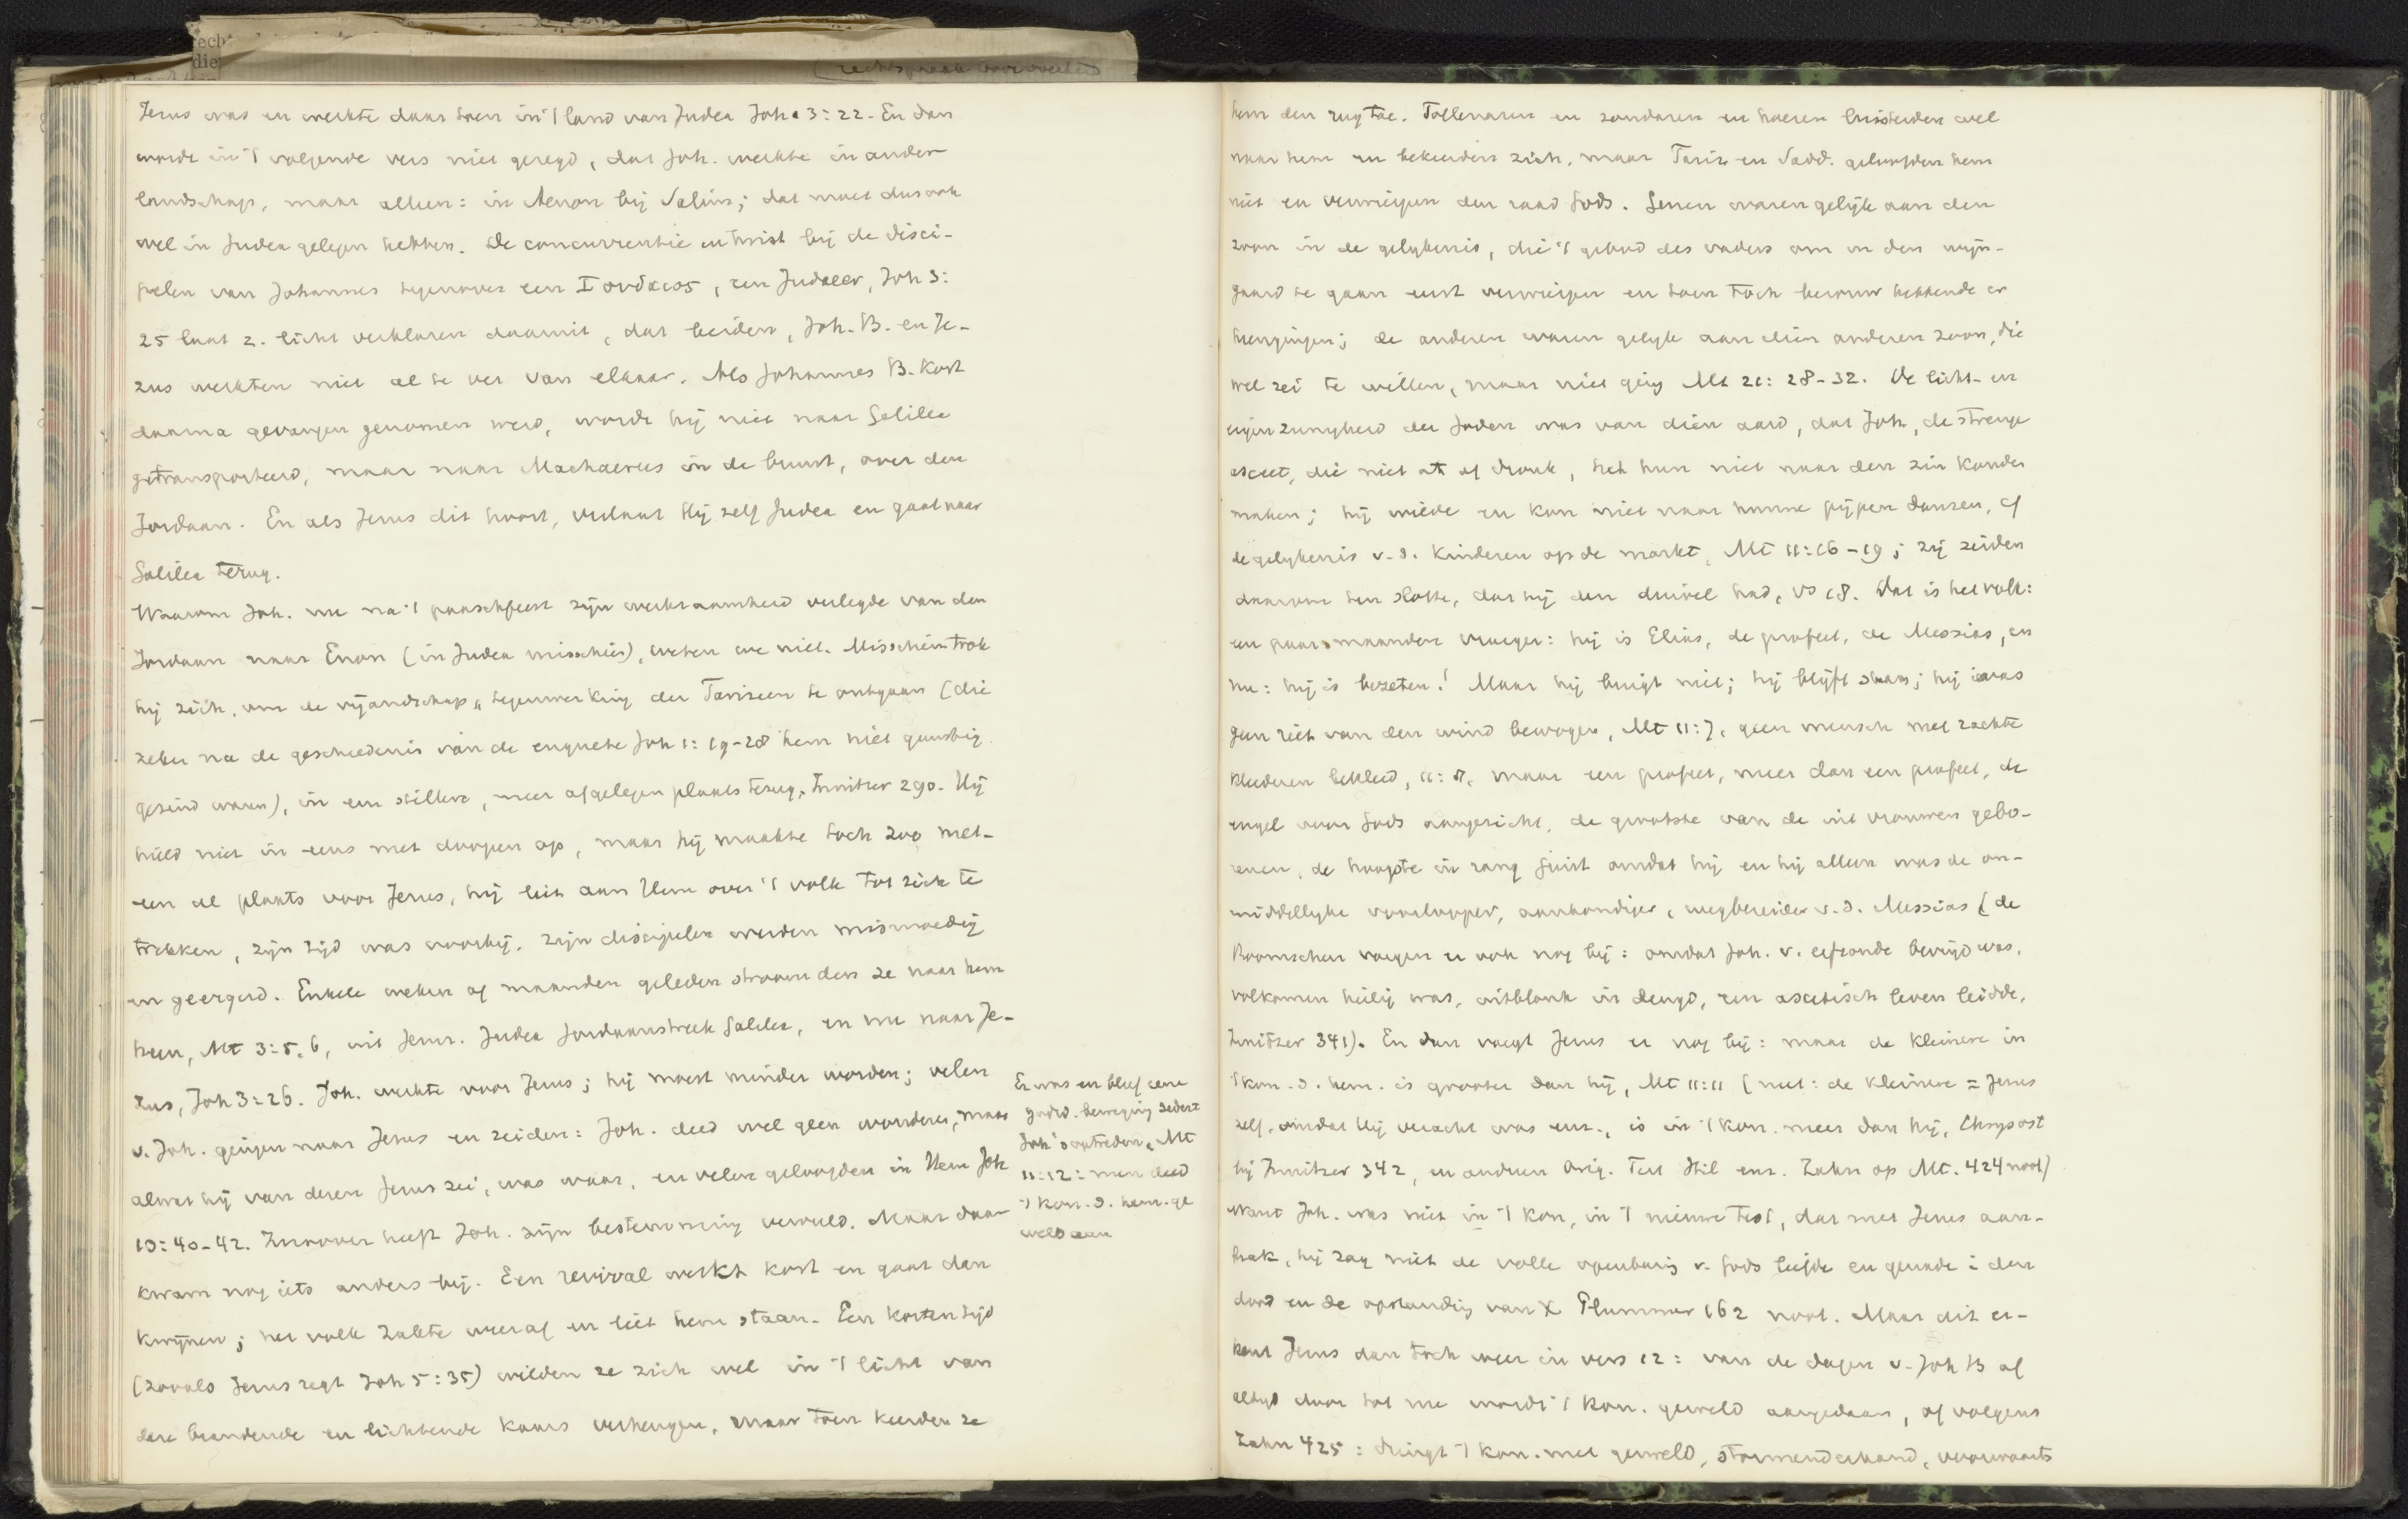 rech
die
(rechtspraak
Jezus was en werkte daar toen in 't land van Judea Joh. 3:22. En dan
wordt in 't volgende vers niet gezegd, dat Joh. werkte in ander
landschap, maar alleen: in Aenon bij Salim; dat moet dus ook
wel in Judea gelegen hebben. De concurrentie en twist bij de disci-
pelen van Johannes tegenover een Ιουδαιος, een Judaeer, Joh 3:
25 laat z. licht verklaren daaruit, dat beiden, Joh. B. en Je-
zus werkten niet al te ver van elkaar. Als Johannes B. kort
daarna gevangen genomen werd, wordt hij niet naar Galilea
getransporteerd, maar naar Machaerus in de buurt, over den
Jordaan. En als Jezus dit hoort, verlaat Hij zelf Judea en gaat naar
Galilea terug.
Waarom Joh. nu na 't paaschfeest zijn werkzaamheid verlegde van den
Jordaan naar Enon (in Judea misschien), weten we niet. Misschien trok
hij zich, om de vijandschap, tegenwerking der Farizeen te ontgaan (die
zeker na de geschiedenis van de enquete Joh 1:19-28 hem niet gunstig
gezind waren), in een stillere, meer afgelegen plaats terug, Innitzer 290. Hij
hield niet in eens met doopen op, maar hij maakte toch zoo met-
een al plaats voor Jezus, hij liet aan Hem over 't volk tot zich te
trekken, zijn tijd was voorbij. Zijn discipelen werden mismoedig
en geergerd. Enkele weken of maanden geleden stroomden ze naar hem
heen, Mt 3:5,6, uit Jeruz. Judea Jordaanstreek Galilea, en nu naar Je-
zus, Joh 3:26. Joh. werkte voor Jezus; hij moest minder worden; velen
v. Joh. gingen naar Jezus en zeiden: Joh. deed wel geen wonderen, maar
alwat hij van dezen Jezus zei, was waar, en velen geloofden in Hem Joh
10:40-42. Inzoover heeft Joh. zijn bestemming vervuld. Maar daar
kwam nog iets anders bij. Een revival werkt kort en gaat dan
kwijnen; het volk zakte weer af en liet hem staan. Een korten tijd
(zooals Jezus zegt Joh 5:35) wilden ze zich wel in 't licht van
deze brandende en lichtende kaars verheugen, maar toen keerden ze
Er was en bleef eene
godsd. beweging sedert
Joh's optreden, Mt
11:12: men deed
't kon. d. hem. ge
weld aan
hem den rug toe. Tollenaren en zondaren en hoeren luisterden wel
naar hem en bekeerden zich, maar Fariz. en Sadd. geloofden hem
niet en verwierpen den raad Gods. Genen waren gelijk aan den
zoon in de gelijkenis, die 't gebod des vaders om in den wijn-
gaard te gaan eerst verwierpen en toen toch berouw hebbende er
heengingen; de anderen waren gelijk aan dien anderen zoon, die
wel zei te willen, maar niet ging Mt 21:28-32. De licht- en
eigenzinnigheid der Joden was van dien aard, dat Joh., de strenge
asceet, die niet at of dronk, het hun niet naar den zin konden
maken; hij wilde en kon niet naar hunne pijpen dansen, cf
de gelijkenis v.d. kinderen op de markt, Mt 11:16-19; zij zeiden
daarom ten slotte, dat hij den duivel had, vs 18. Dat is het volk:
een paar maanden vroeger: hij is Elias, de profeet, de Messias, en
nu: hij is bezeten! Maar hij buigt niet; hij blijft staan; hij was
geen riet van den wind bewogen, Mt 11:7, geen mensch met zachte
kleederen bekleed, 11:8, maar een profeet, meer dan een profeet, de
engel voor Gods aangezicht, de grootste van de uit vrouwen gebo-
renen, de hoogste in rang juist omdat hij en hij alleen was de on-
middellijke voorlooper, aankondiger, wegbereider v.d. Messias (de
Roomschen voegen er ook nog bij: omdat Joh. v. erfzonde bevrijd was,
volkomen heilig was, uitblonk in deugd, een ascetisch leven leidde,
Innitzer 341). En dan voegt Jezus er nog bij: maar de kleinere in
't kon. d. hem. is grooter dan hij, Mt 11:11 (niet: de kleinere = Jezus
zelf, omdat Hij veracht was enz., is in 't kon. meer dan hij, Chrysost
bij Innitzer 342, en anderen Orig. Tert Hil enz. Zahn op Mt. 424 noot)
want Joh. was niet in 't kon, in 't nieuwe Test, dat met Jezus aan-
brak, hij zag niet de volle openbaring v. Gods liefde en genade i den
dood en de opstanding van X Plummer 162 noot. Maar dit er-
kent Jezus dan toch weer in vers 12: van de dagen v. Joh B af
altijd door tot nu wordt 't kon. geweld aangedaan, of volgens
Zahn 425: dringt 't kon. met geweld, stormenderhand, voorwaarts